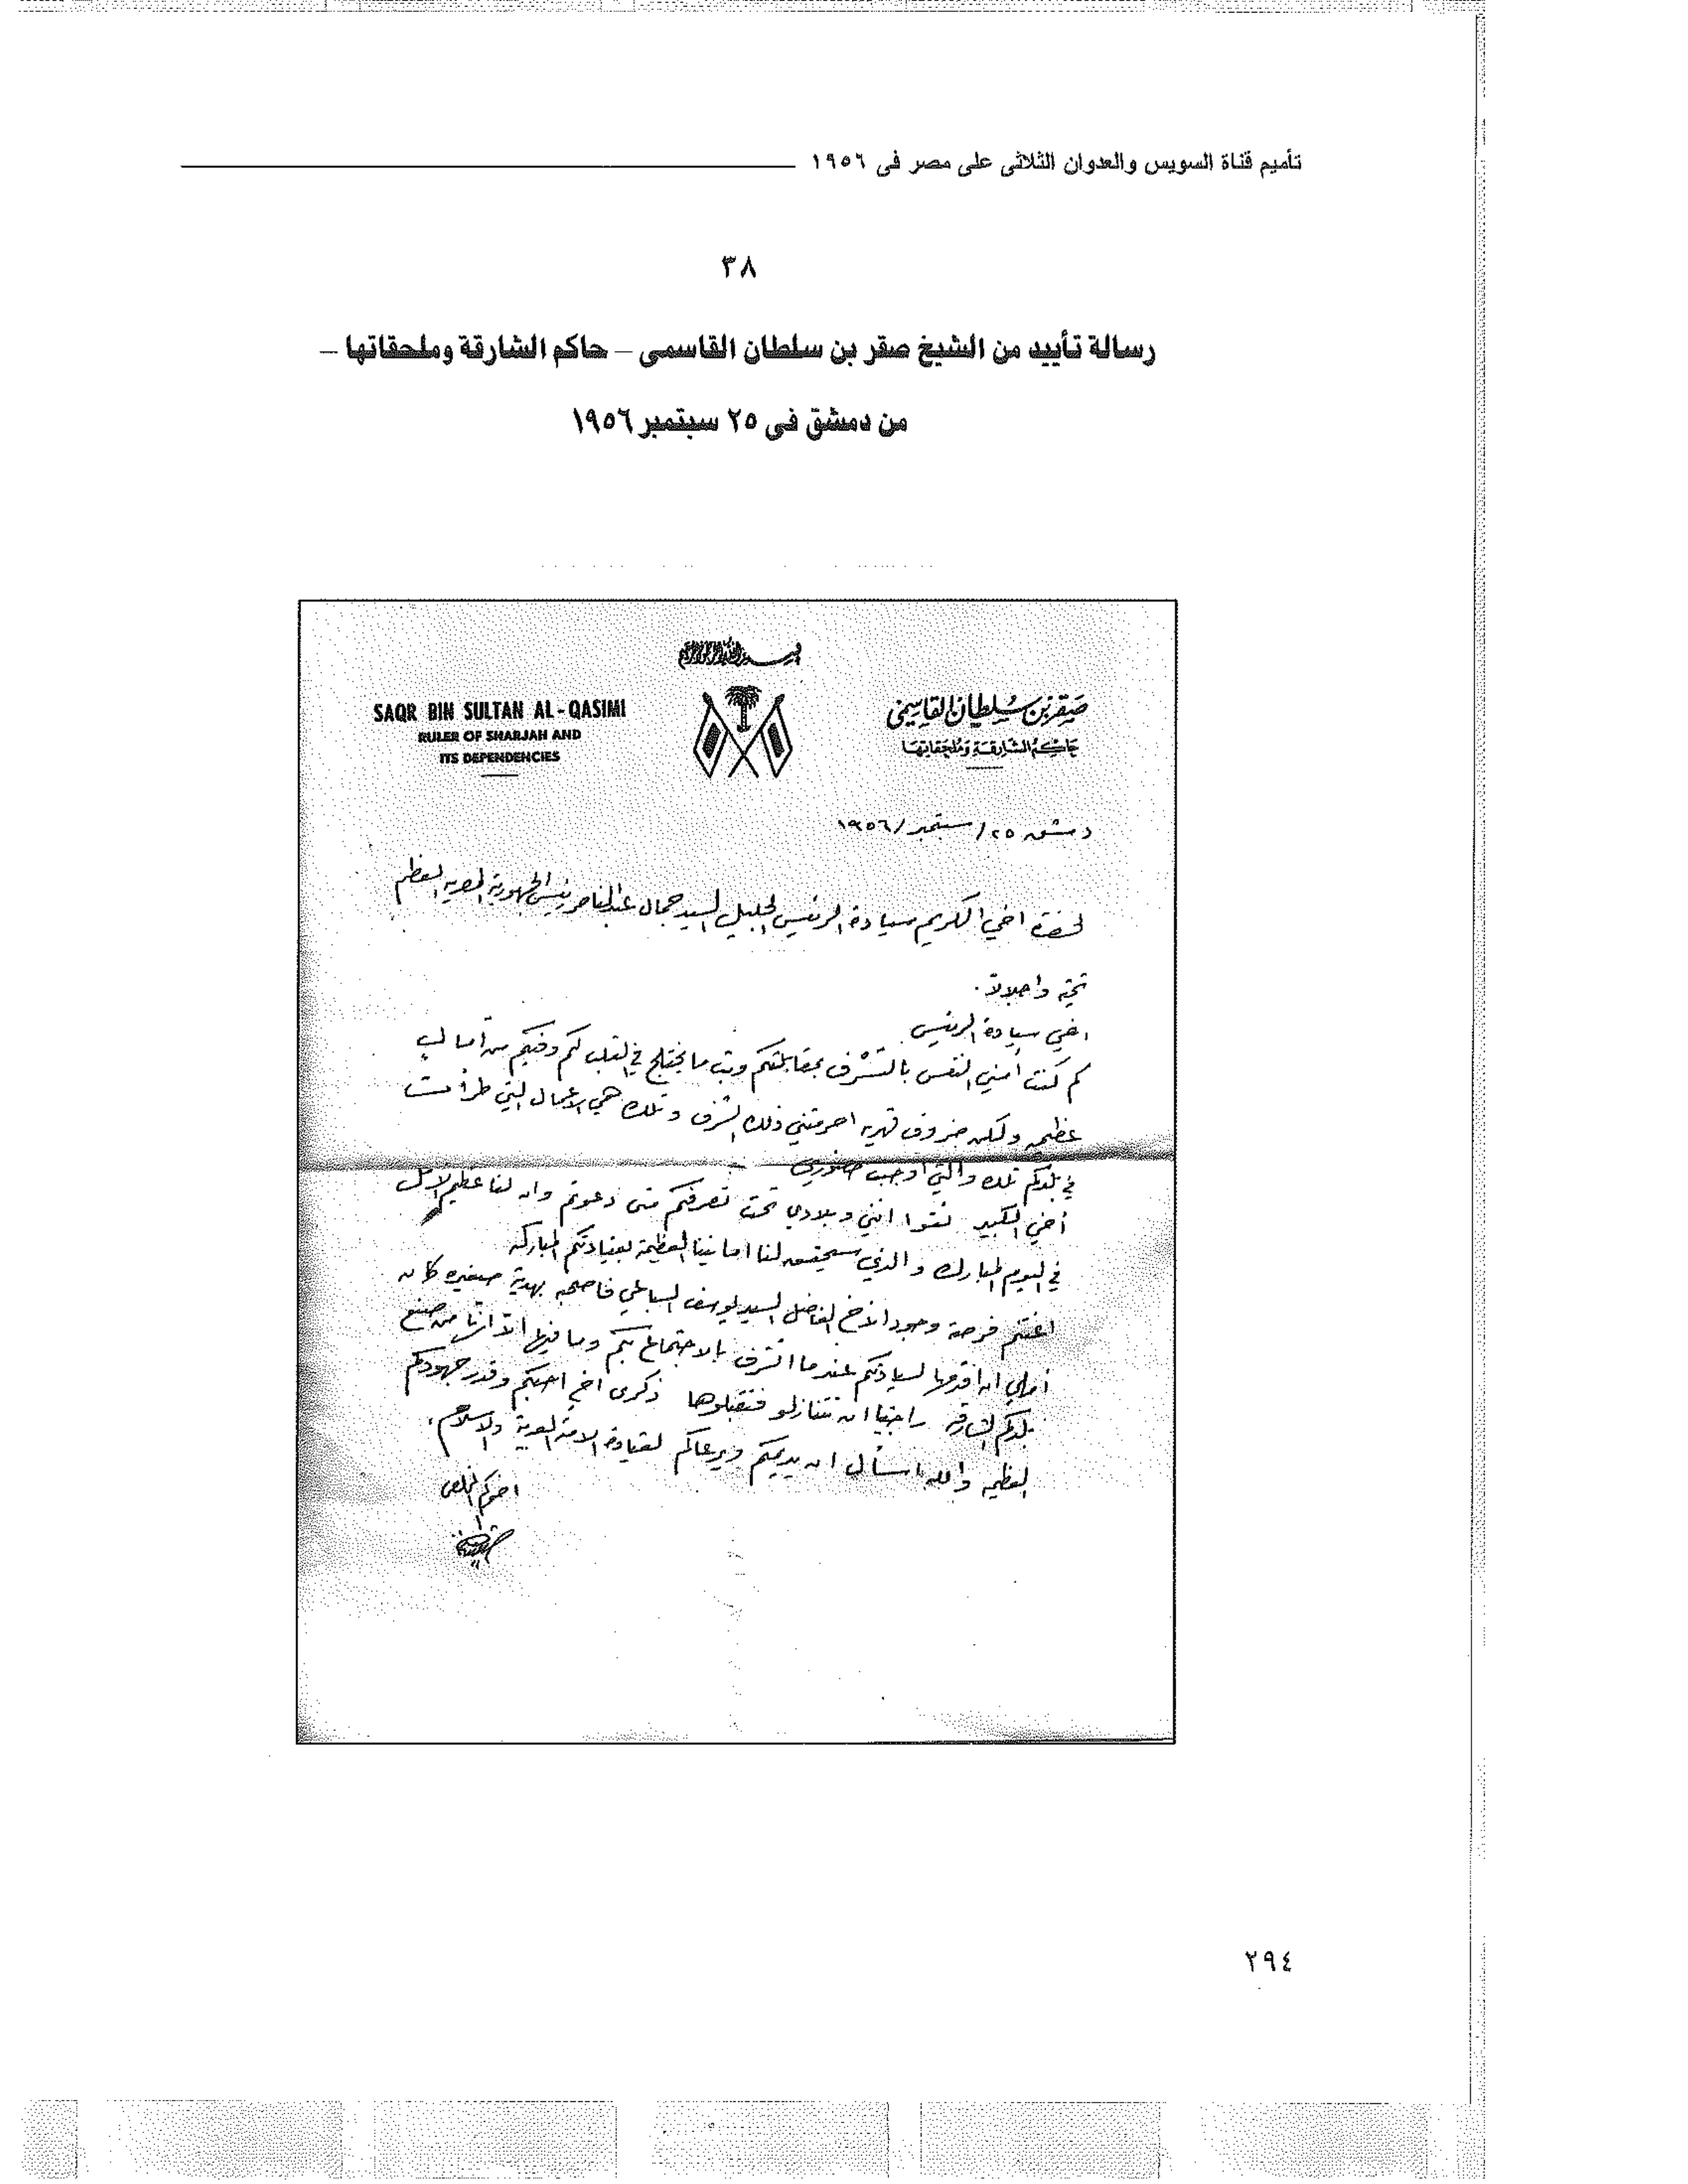 تأميم قناة السويس والعدوان الثلاثى على مصر فى ١٩٥٦
٣٨
رسالة تأييد من الشيخ صقر بن سلطان القاسمى – حاكم الشارقة وملحقاتها –
من دمشق فى ٢٥ سبتمبر ١٩٥٦
بسم الله الرحمن الرحيم
صقر بن سلطان القاسمي
حاكم الشارقة وملحقاتها
SAQR BIN SULTAN AL-QASIMI
RULER OF SHARJAH AND
ITS DEPENDENCIES
دمشق ٢٥/سبتمبر/١٩٥٦
لحضرة اخي الكريم سيادة الرئيس الجليل السيد جمال عبد الناصر رئيس الجمهورية المصرية المعظم
تحية واجلالاً.
اخي سيادة الرئيس
كم كنت أمني النفس بالتشرف بمقابلتكم وبث ما يختلج في القلب لكم وفيكم من آمال
عظيمه ولكن ضروف قهريه احرمتني ذلك الشرف وتلك هي الاعمال التي طرأت
في بلدكم تلك والتي اوجبت حضوري
أخي الكبير ثقوا انني وبلادي تحت تصرفكم متى دعوتم وان لنا عظيم الامل
في اليوم المبارك والذي سيحقق لنا امانينا العظيمة بقيادتكم المباركه
اغتنم فرصة وجود الاخ الفاضل السيد يوسف السباعي فاصحبه بهدية صغيره كان
أملي ان اقدمها لسيادتكم عندما اتشرف بالاجتماع بكم وما فيها الا انها من صنع
بلدكم الشارقه راجيا ان تتنازلو فتقبلوها ذكرى اخ احبكم وقدر جهودكم
العظيمه والله اسأل ان يديمكم ويرعاكم لقيادة الامة العربية والاسلام،
اخوكم المخلص
٢٩٤